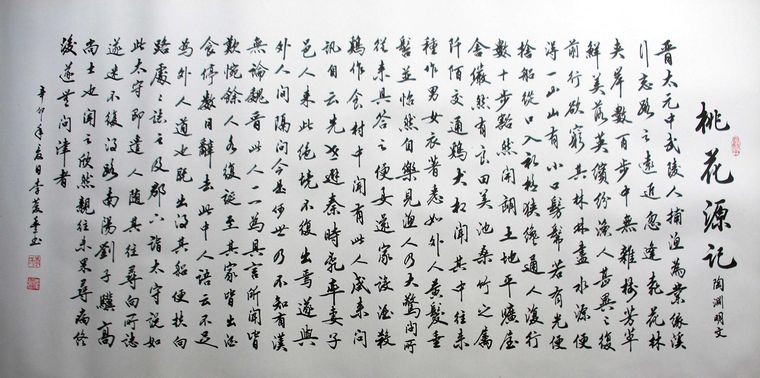 桃花源记
陶渊明文
晋太元中武陵人捕渔为業缘溪
行忘路之遠近忽逢桃花林
夹岸数百步中無雜樹芳草
鲜美落英缤纷渔人甚異之復
前行欲窮其林林盡水源便
得一山山有小口髣髴若有光便
捨船從口入初极狭纔通人復行
数十步豁然開朗土地平曠屋
舍儼然有良田美池桑竹之屬
阡陌交通鷄犬相聞其中往来
種作男女衣著悉如外人黄髮垂
髫並怡然自樂見渔人乃大驚问所
從来具答之便要遂家設酒殺
鷄作食村中聞有此人咸来问
訊自云先世避秦時乱率妻子
邑人来此绝境不復出焉遂與
外人间隔问今是何世乃不知有漢
無論魏晋此人一一为具言所聞皆
歎惋餘人各復延至其家皆出酒
食停数日辭去此中人語云不足
为外人道也既出得其船便扶向
路處〻誌之及郡下詣太守説如
此太守即遣人随其往尋向所誌
遂迷不復得路南陽劉子驥高
尚士也聞之欣然親往未果尋病终
後遂无问津者
辛卯年夏日李